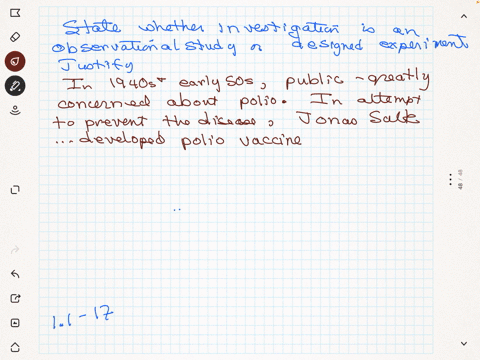 State whether investigation is an
observational study or designed experiment
Justify
In 1940s + early 50s, public - greatly
concerned about polio. In attempt
to prevent the disease, Jonas Salk
... developed polio vaccine
1.1-17